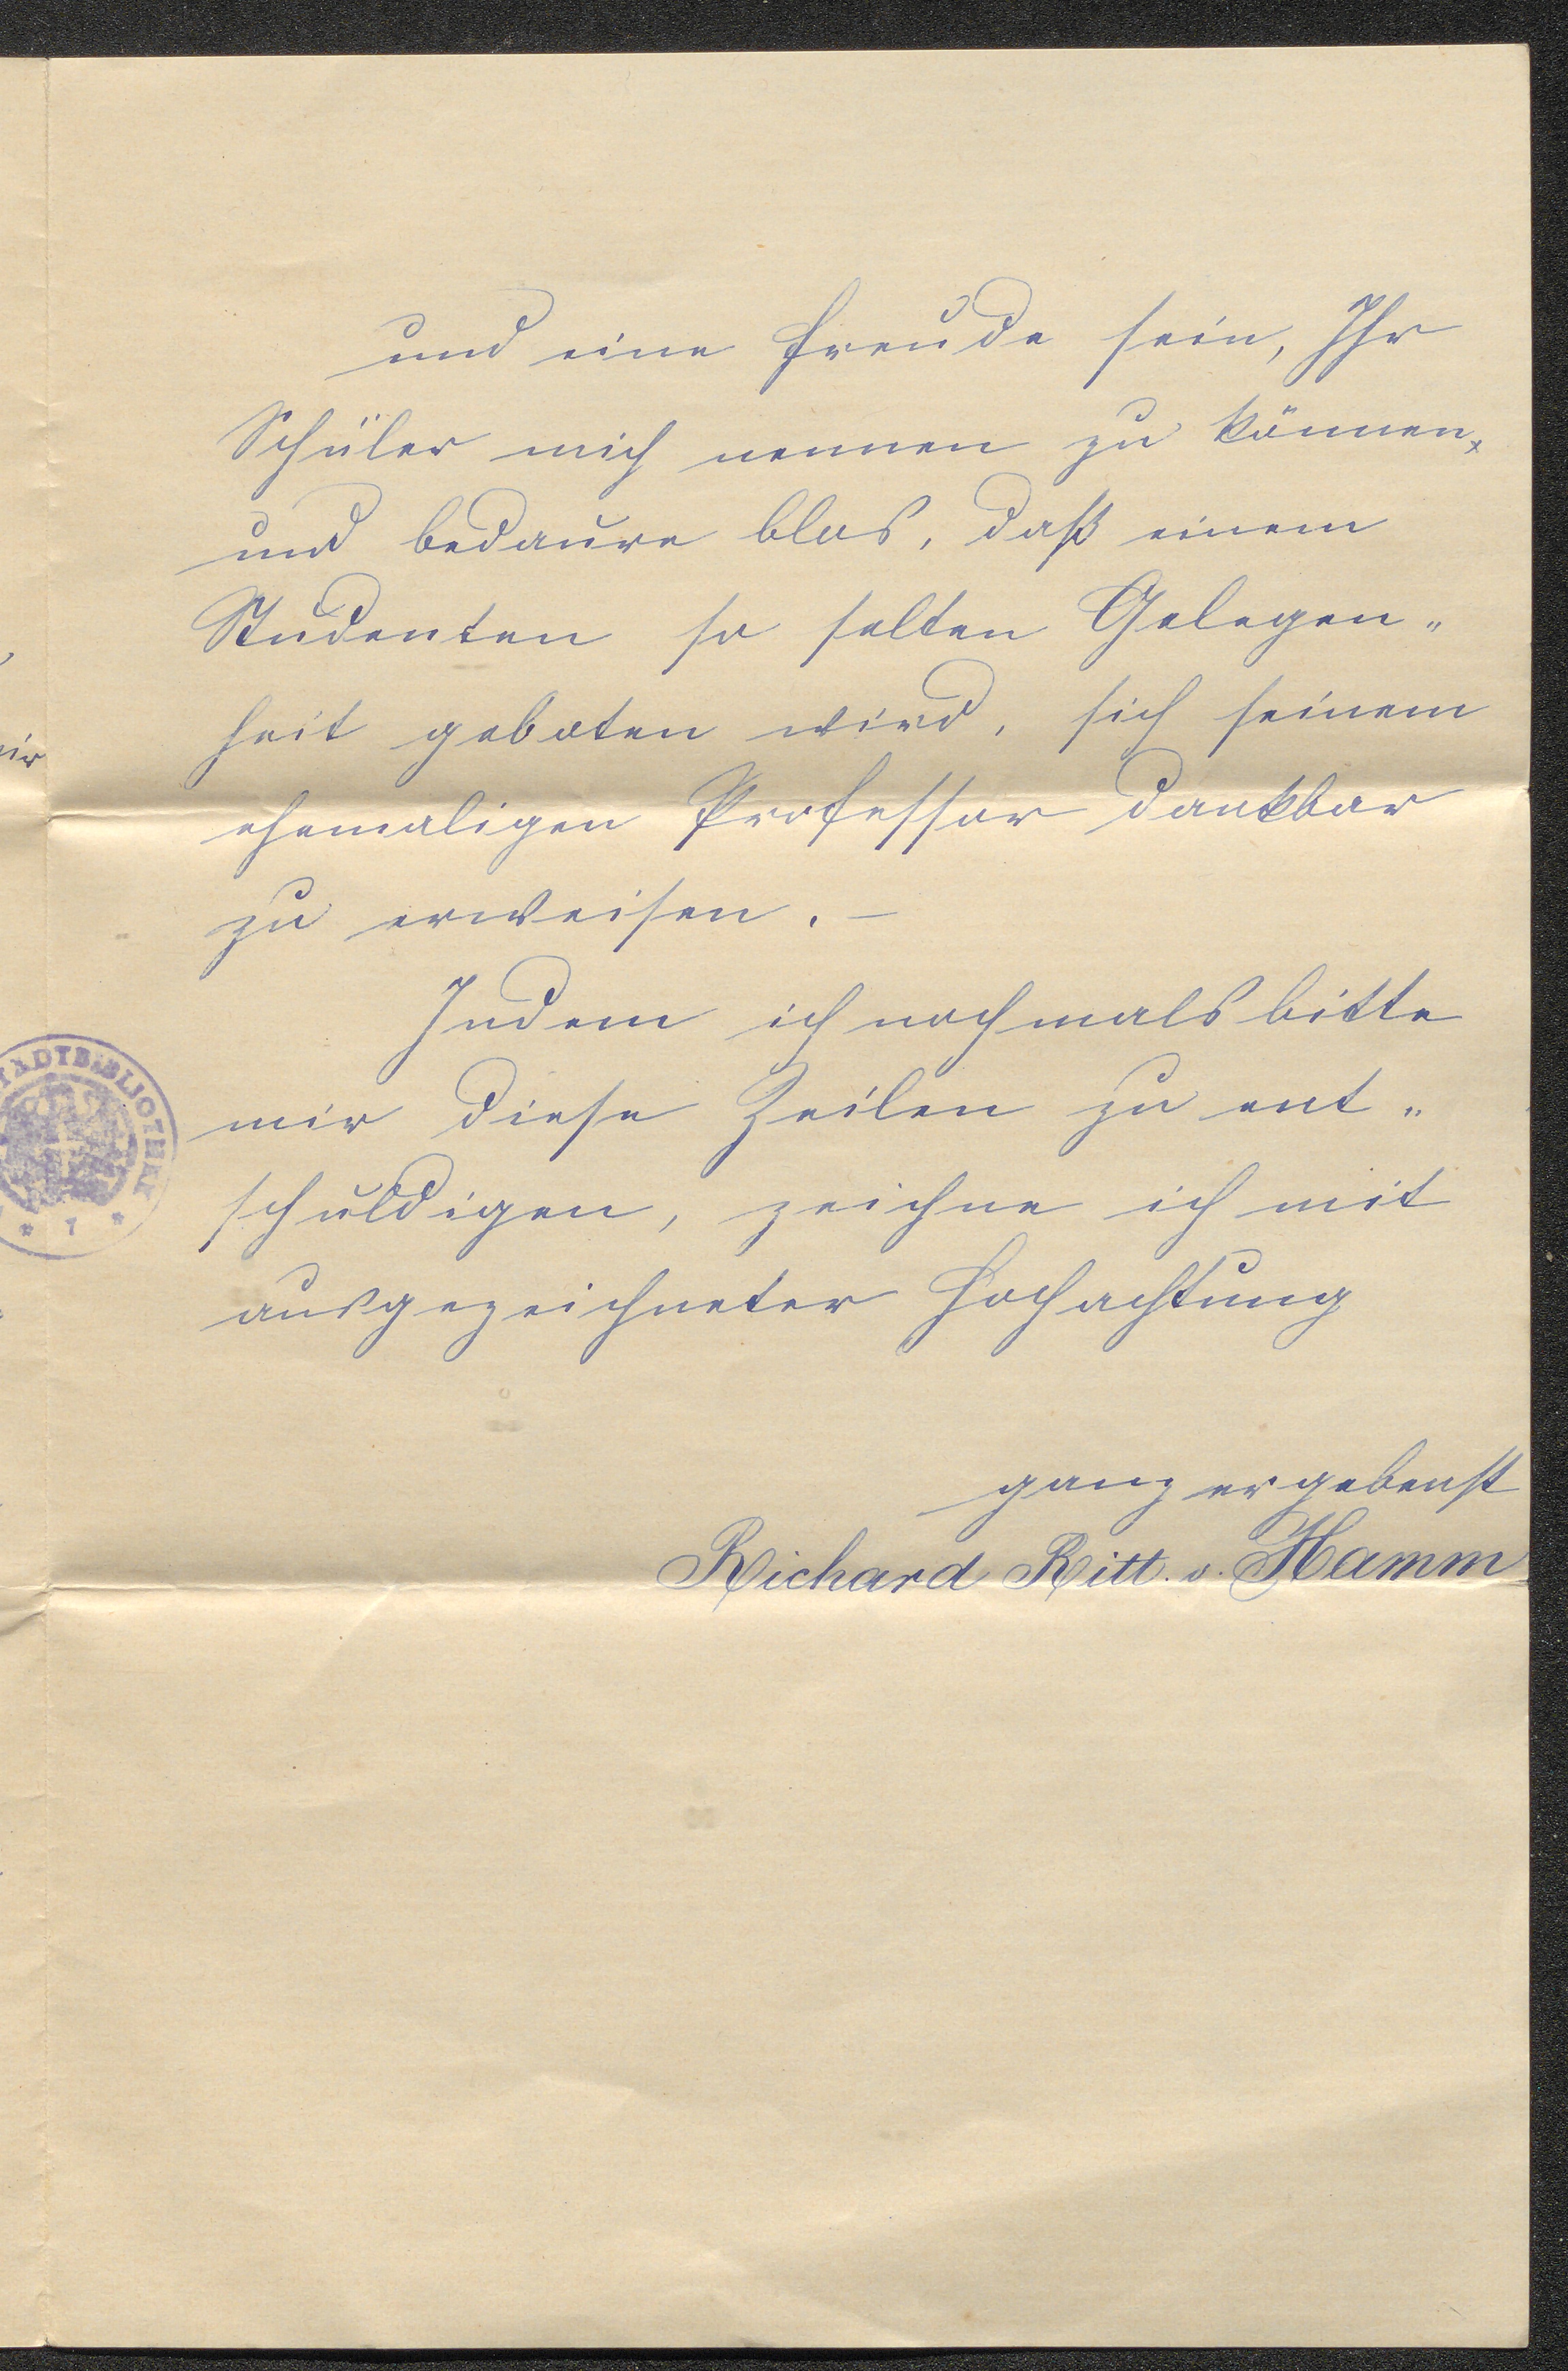 und eine Freude sein, Ihr
Schüler mich nennen zu können,
und bedaure blos, daß einem
Studenten so selten Gelegen„
heit geboten wird, sich seinem
ehemaligen Professor dankbar
zu erweisen. –
Indem ich nochmals bitte
mir diese Zeilen zu ent„
schuldigen, zeichne ich mit
ausgezeichneter Hochachtung
ganz ergebenst
Richard Ritt. v. Hamm
TADTBIBLIOTHEK
* 7 *